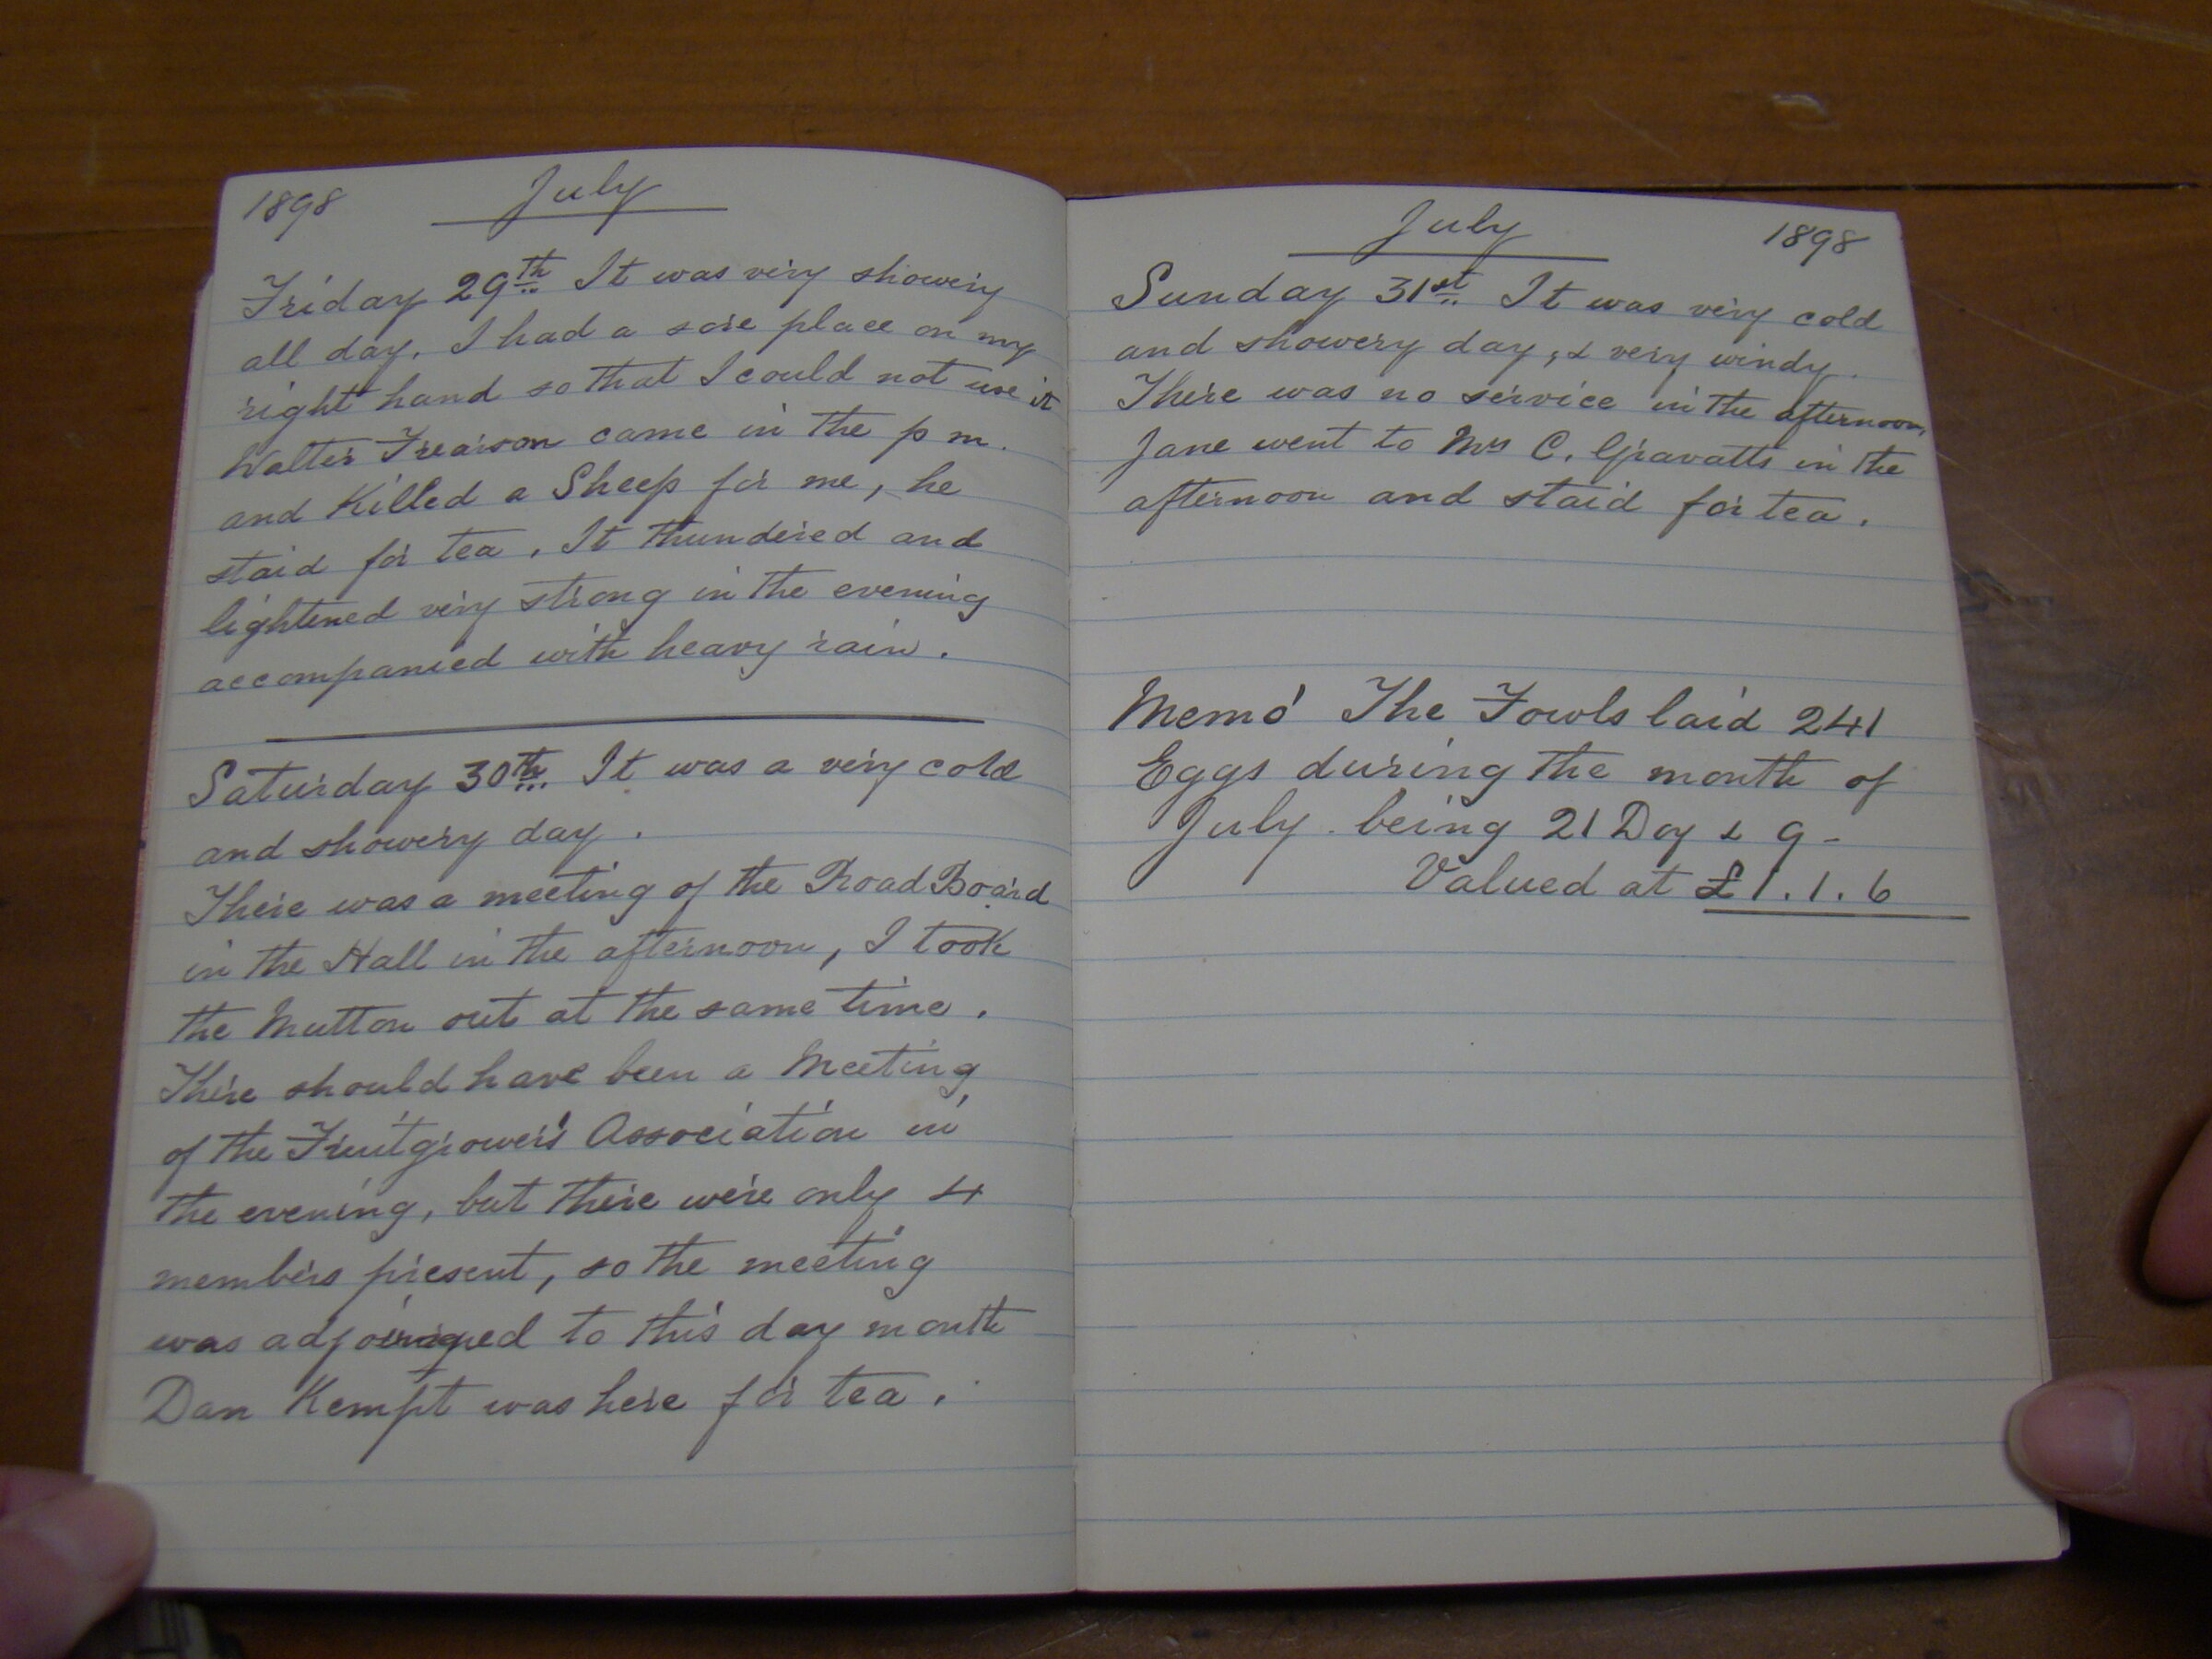 1898 July
Friday 29th It was very showery
all day, I had a sore place on my
right hand so that I could not use it
Walter Frearson came in the p m.
and Killed a Sheep for me, he
staid for tea. It thundered and
lightened very strong in the evening
accompanied with heavy rain.
Saturday 30th It was a very cold
and showery day.
There was a meeting of the Road Board
in the Hall in the afternoon, I took
the Mutton out at the same time.
There should have been a Meeting
of the Fruitgrower's Association in
the evening, but there were only 4
members present, so the meeting
was to this day month
Dan Kempt was here for tea.
July 1898
Sunday 31st It was very cold
and showery day, & very windy.
There was no service in the afternoon,
Jane went to Mrs C. Gravatts in the
afternoon and staid for tea.
Memo' The Fowls laid 241
Eggs during the month of
July. being 21 Doz & 9 -
Valued at £1.1.6